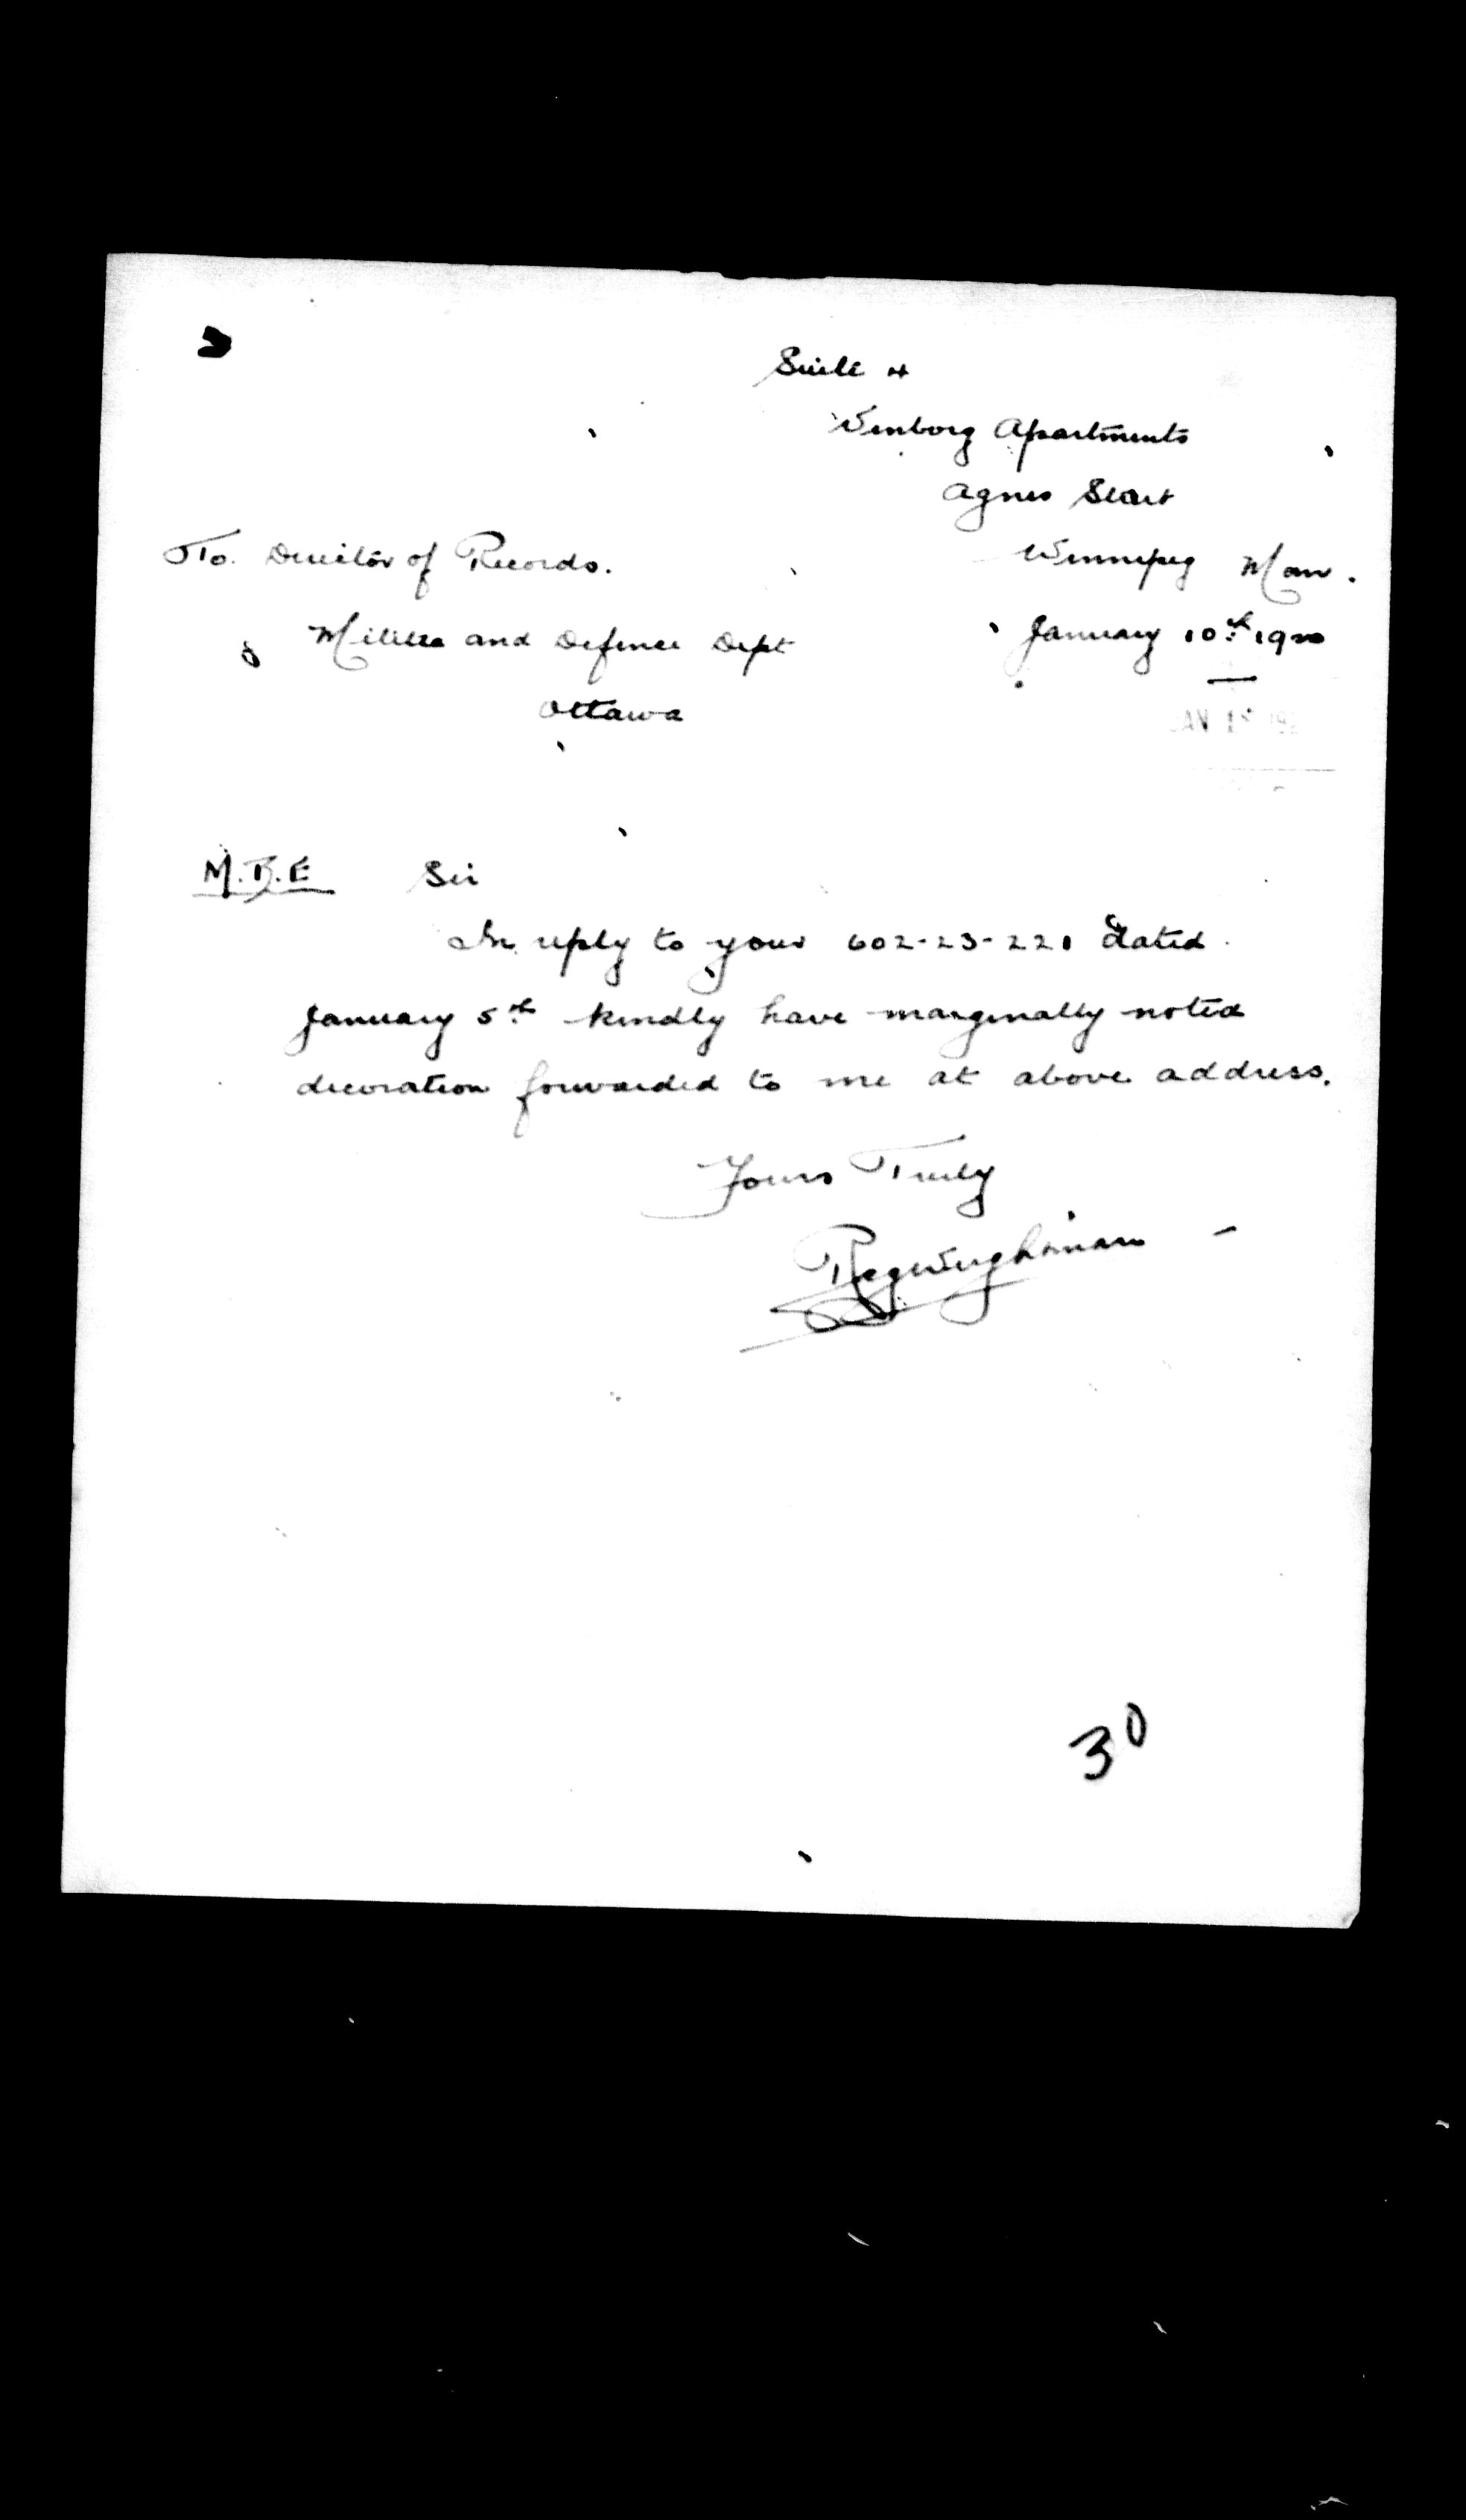 Suite 4
Wenborg Apartments
Agnes Street
Winnipeg Man.
January 10th 1920
To. Director of Records.
Militia and Defence Dept
Ottawa
JAN 15 192
M.B.E Sir
In reply to your 602-23-221 dated
January 5th kindly have marginally noted
decoration forwarded to me at above address.
Yours Truly
Reg Weightman
30